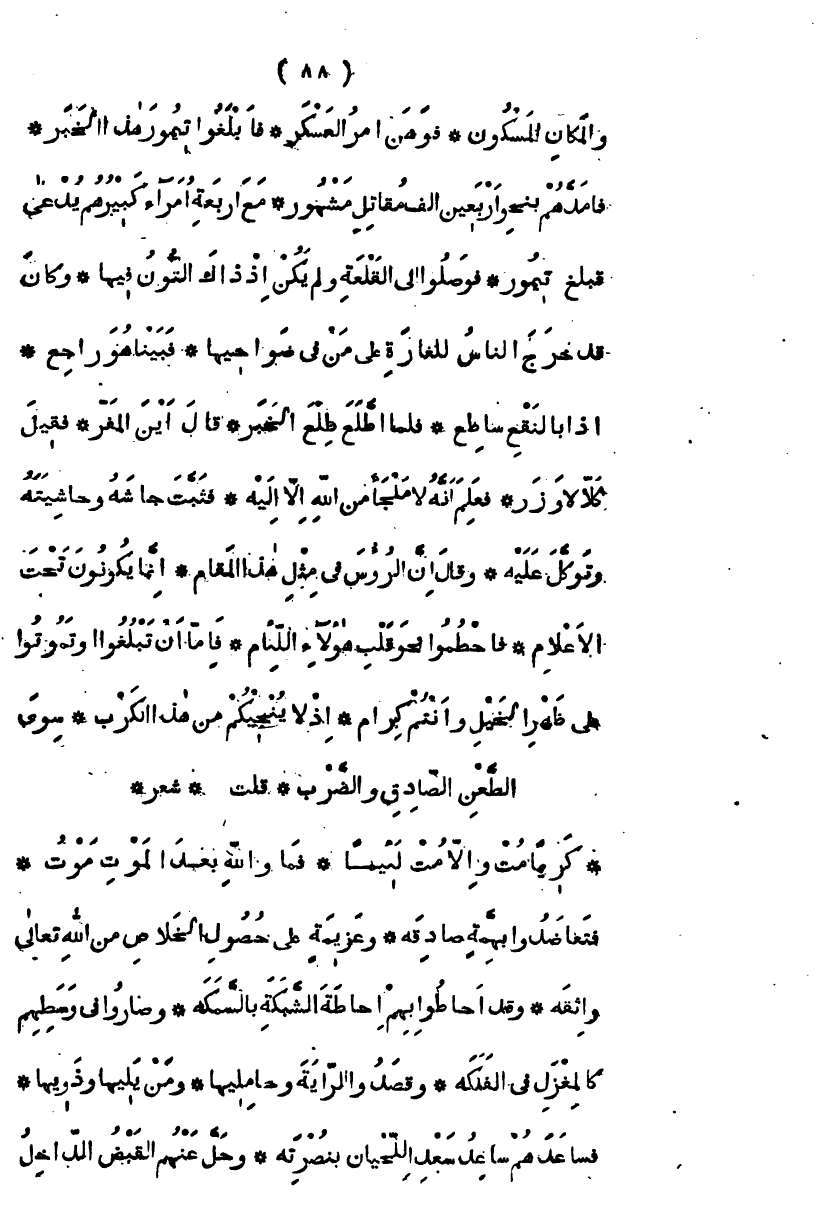 ( ٨٨ )
والمَكانِ المَسْكُون * فوَهَن امرُ العَسْكَر * فاَبْلَغُوا تِيمُورَ هٰذا الخَبَر *
فامَدَّهُمْ بنحو اَرْبَعِين الف مُقاتِلٍ مَشْهُور * مَعَ اَرْبَعَةِ اُمَرَآءَ كَبِيْرُهم يُدْعىٰ
قبلغ تِيمُور * فوَصَلُوا الى القَلْعَةِ ولم يَكُنْ اِذْ ذاكَ التُّونُ فِيها * وكانَ
قد خَرَجَ الناسُ للغارَةِ على مَنْ فى ضَواحِيها * فَبَيْنا هُوَ راجِع *
اذا بالنَقْعِ ساطِع * فلما اطَّلَعَ طِلْعَ الخَبَر * قالَ اَيْنَ المَفَرّ * فقِيلَ
كَلّا لاوَزَر * فعَلِمَ اَنَّهُ لا مَلْجَأَ من اللهِ اِلّا اِلَيْه * فثَبَّتَ جاشَهُ وحاشِيَتَهُ
وتَوَكَّلَ عَلَيْه * وقالَ اِنَّ الرُؤُسَ فى مِثْلِ هٰذا المَقام * اِنَّما يَكُونُونَ تَحْتَ
الاَعْلام * فاحْطُمُوا نحو قَلْبِ هٰؤُلآءِ اللِّئام * فَاِمّا اَنْ تَبْلُغُوا اوتَمُوتُوا
على ظَهْرِ الخَيْلِ وانْتُمْ كِرام * اِذْ لا يُنْجِيْكُمْ من هٰذا الكَرْب * سِوىَ
الطَّعْنِ الصّادِقِ والضَّرْب * قلت * شعر *
* كَرِيمًا مُتْ واِلّا مُتْ لَئِيمًا * فَما واللهِ بعدَ المَوْتِ مَوْتُ *
فتَعاضَدُوا بِهِمَّةٍ صادِقَه * وعَزِيمَةٍ على حُصُولِ الخَلاصِ من اللهِ تعالٰى
واثِقَه * وقد اَحاطُوا بِهِمْ اِحاطَةَ الشَّبَكَةِ بالسَّمَكَه * وصارُوا فى وَسَطِهِم
كالمِغْزَلِ فى الفَلَكَه * وقصَدُوا الرّايَةَ وحامِلِيها * ومَنْ يَلِيها وذَوِيها *
فساعَدَهُمْ ساعِدُ سَعْدِ اللِّحْيان بنُصْرَتِه * وحَلَّ عَنْهُم القَبْضُ الدّاخِلُ